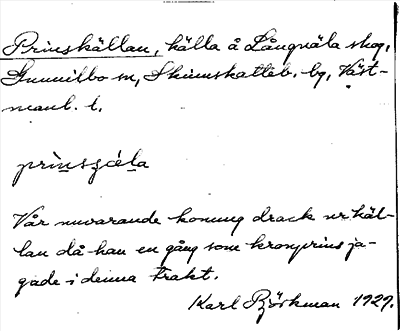 Prinskällan, källa å Långnäla skog,
Gunnilbo sn, Skinnskatteb. bg, Väst-
manl. l.
prìnsçɛ́la
Vår nuvarande konung drack ur käl-
lan då han en gång som kronprins ja-
gade i denna trakt.
Karl Björkman 1929.